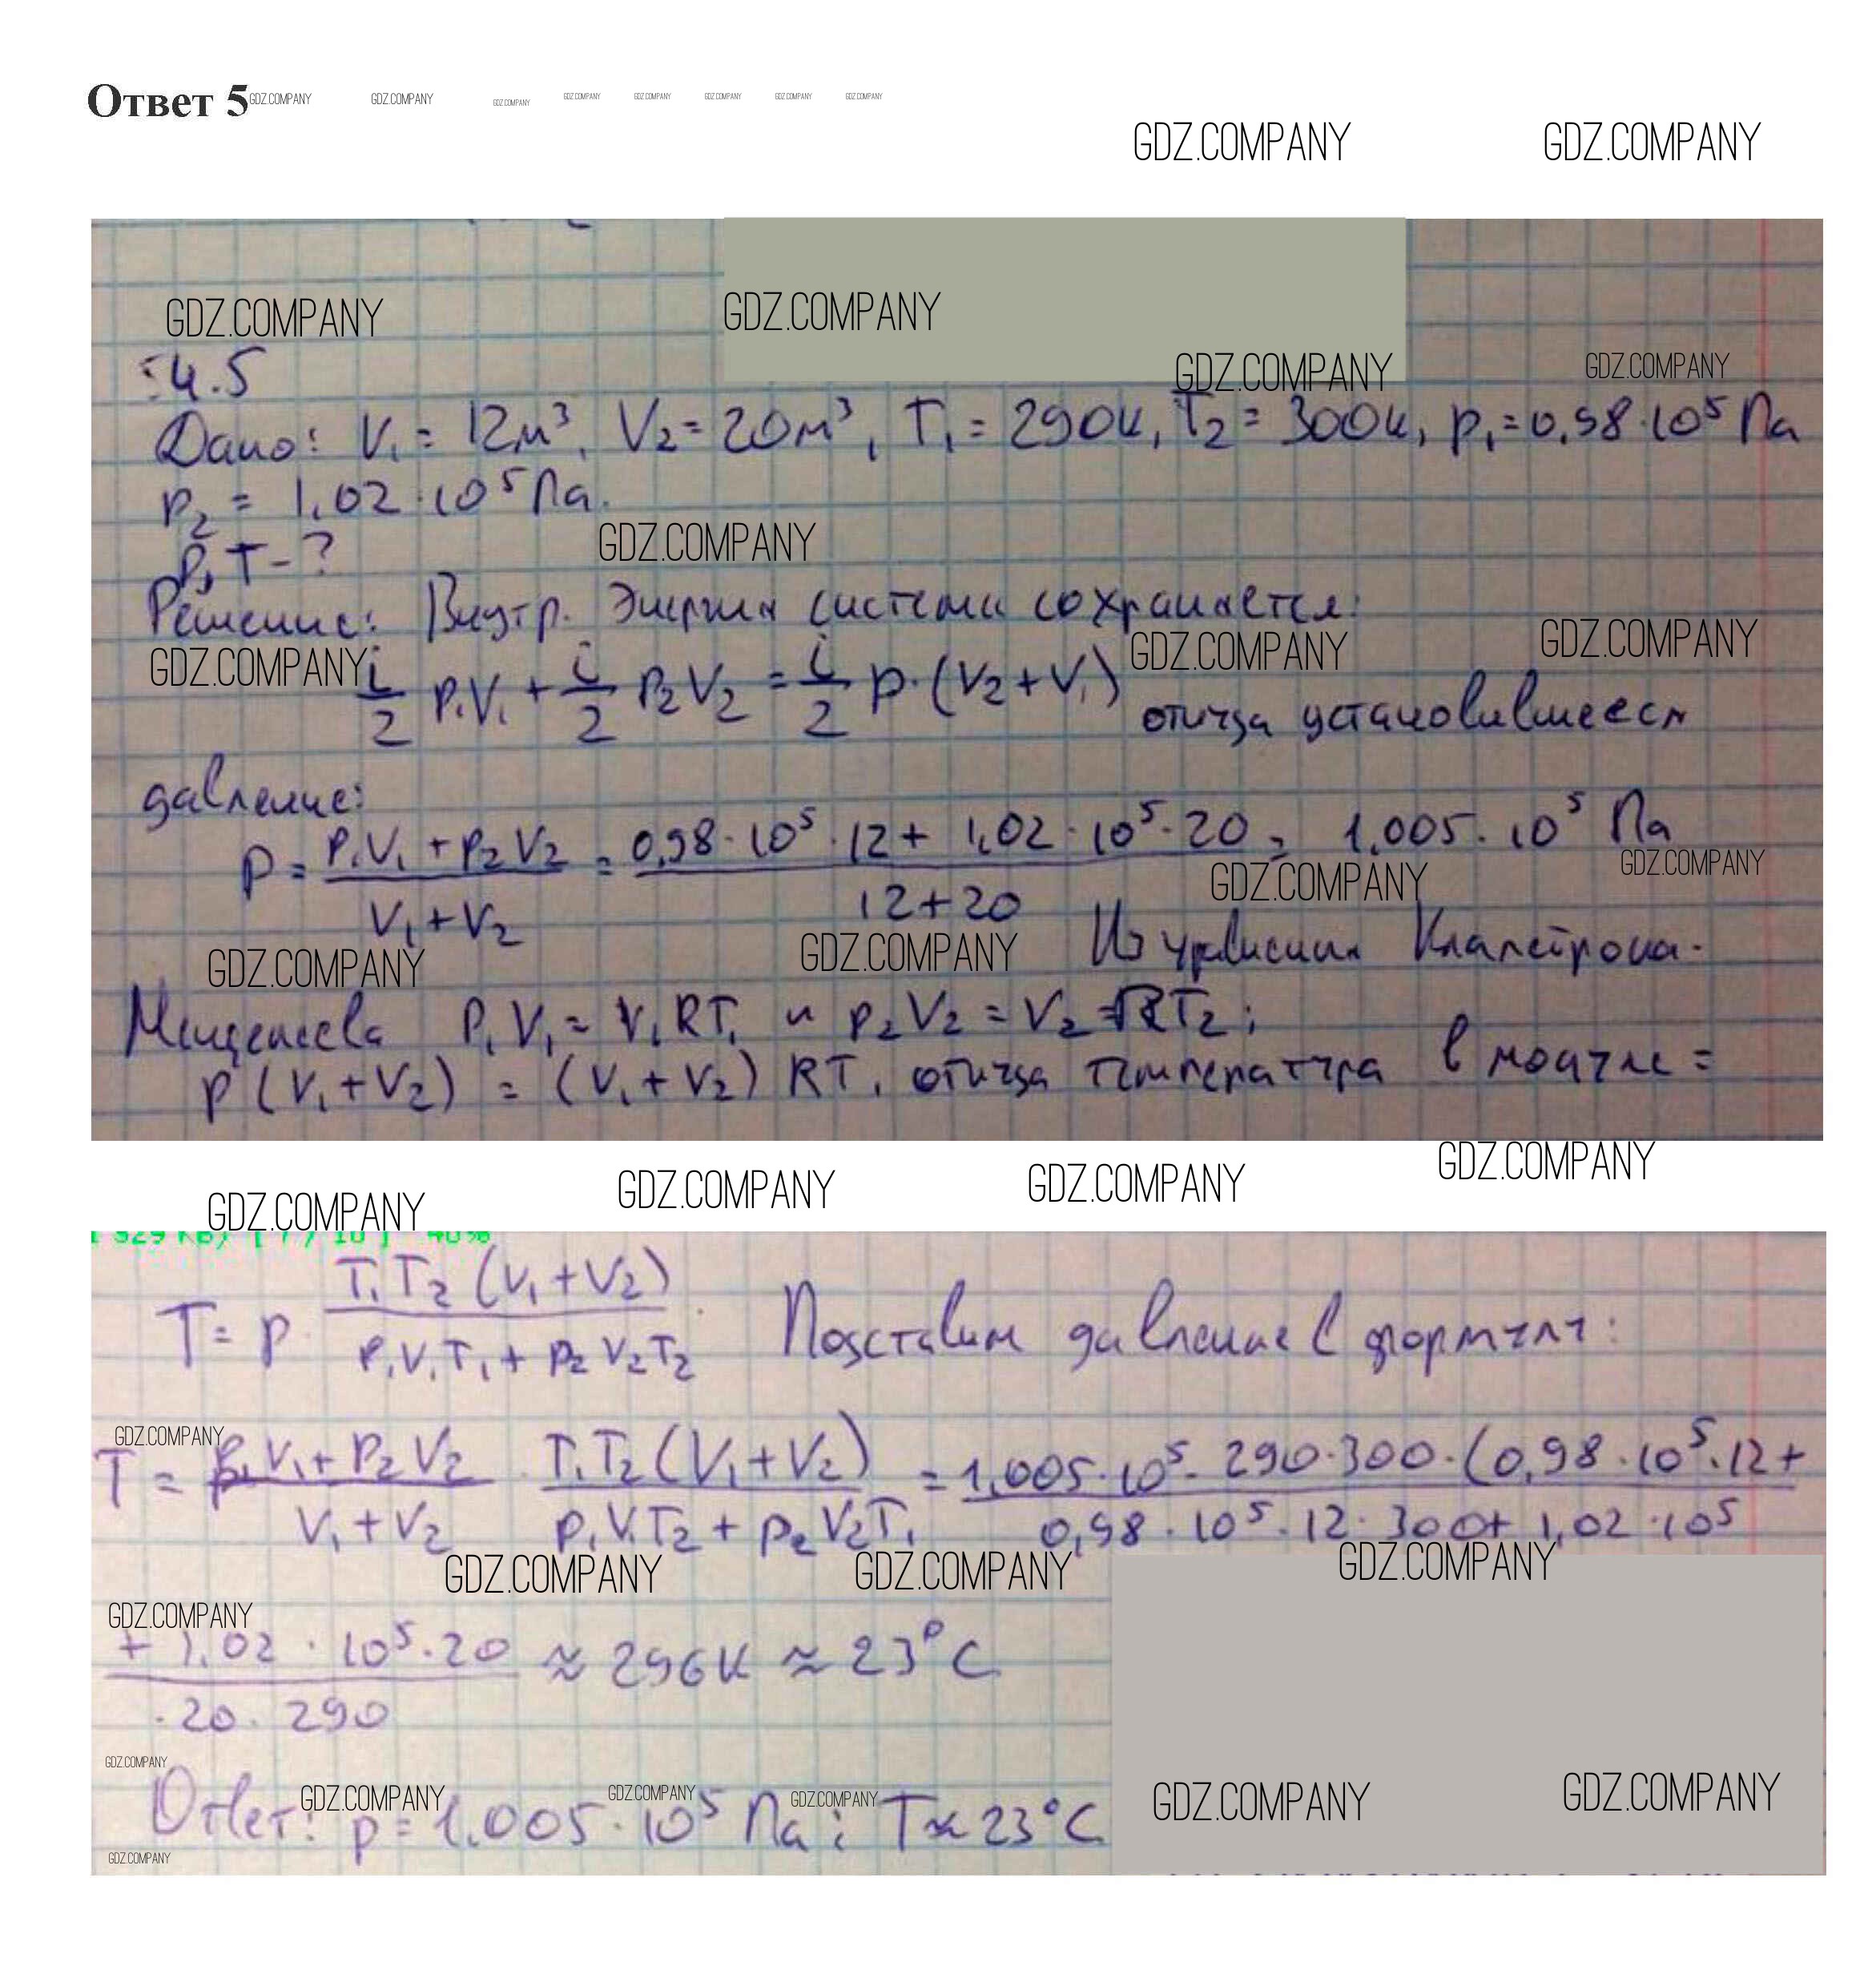 Ответ 5 GDZ.COMPANY GDZ.COMPANY GDZ.COMPANY GDZ.COMPANY GDZ.COMPANY GDZ.COMPANY GDZ.COMPANY GDZ.COMPANY
GDZ.COMPANY GDZ.COMPANY
GDZ.COMPANY GDZ.COMPANY
GDZ.COMPANY GDZ.COMPANY
:4.5
Дано: V₁ = 12м³, V₂ = 20м³, T₁ = 290К, T₂ = 300К, p₁ = 0,98·10⁵ Па
p₂ = 1,02·10⁵ Па.
GDZ.COMPANY
P, T - ?
Решение: Внутр. Энергия система сохраняется:
GDZ.COMPANY GDZ.COMPANY GDZ.COMPANY
i/2 p₁V₁ + i/2 p₂V₂ = i/2 p·(V₂+V₁) откуда установившееся
давление:
p = (p₁V₁ + p₂V₂)/(V₁+V₂) = (0,98·10⁵·12 + 1,02·10⁵·20)/(12+20) = 1,005·10⁵ Па
GDZ.COMPANY GDZ.COMPANY
GDZ.COMPANY GDZ.COMPANY
Из уравнения Клапейрона-
Менделеева P₁V₁ = V₁RT₁ и p₂V₂ = V₂RT₂;
p(V₁+V₂) = (V₁+V₂)RT, откуда температура в
GDZ.COMPANY GDZ.COMPANY GDZ.COMPANY GDZ.COMPANY
T = p · T₁T₂(V₁+V₂)/(p₁V₁T₁ + p₂V₂T₂). Подставим давление в формулу:
GDZ.COMPANY
T = (p₁V₁ + p₂V₂)/(V₁+V₂) · T₁T₂(V₁+V₂)/(p₁V₁T₂ + p₂V₂T₁) = 1,005·10⁵·290·300·(0,98·10⁵·12+ / 0,98·10⁵·12·300+1,02·10⁵
GDZ.COMPANY GDZ.COMPANY GDZ.COMPANY
GDZ.COMPANY
+1,02·10⁵·20 / ·20·290 ≈ 296К ≈ 23°C
GDZ.COMPANY
GDZ.COMPANY GDZ.COMPANY GDZ.COMPANY GDZ.COMPANY GDZ.COMPANY
Ответ: p = 1,005·10⁵ Па; T ≈ 23°C
GDZ.COMPANY